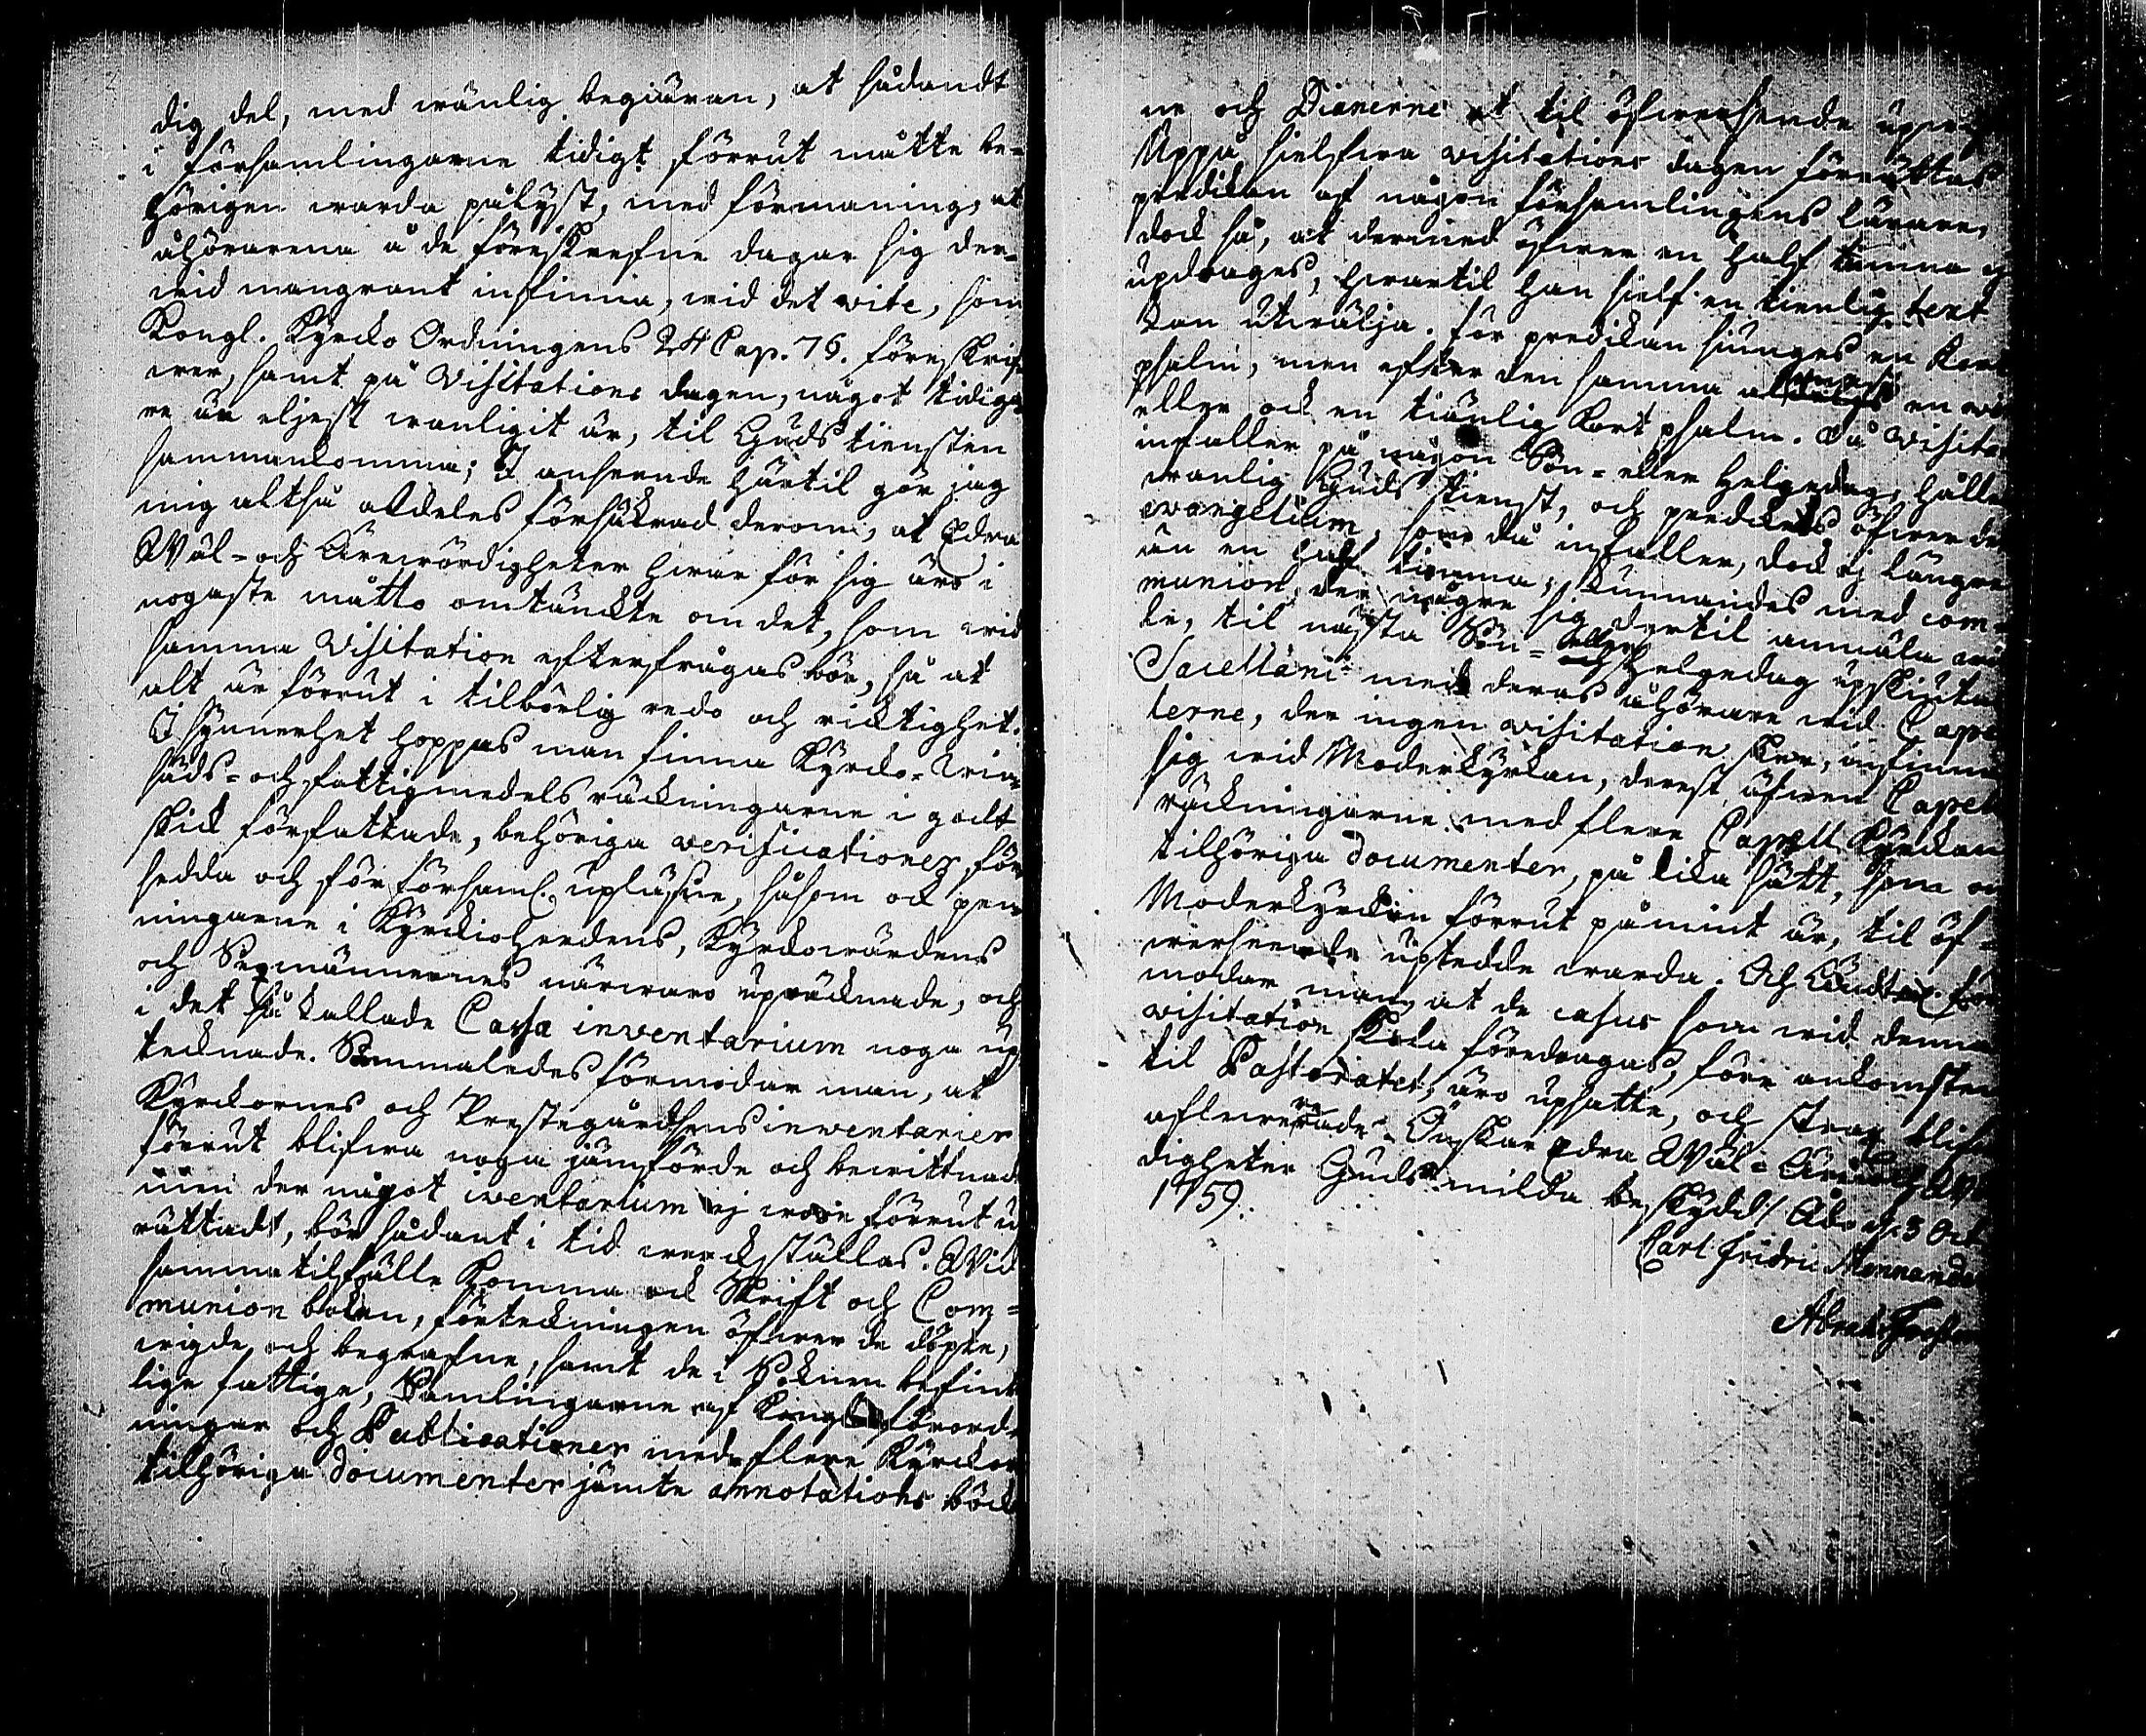 dig del, med wänlig begiäran, at sådandt
i församlingarne tidigt förrut måtte be-
hörigen warda pålyst, med förmaning, at
åhörarena å de föreskrefne dagar sig der-
wid mangrant infinna, wid det wite, som
Kongl. Kyrcko Ordningens 24 Cap. 76. föreskrif-
wer, samt på Visitations dagen, något tidiga
re än eljest wanligit är, til Guds tiensten
sammankomma; I anseende härtil gör jag
mig altså aldeles försäkrad derom, at Edra
Wäl- och Ärewördigheter hwar för sig äro i
nogaste måtto omtänckte om det, som wid
samma Visitation efterfrågas bör, så at
alt är förrut i tilbörlig redo ochricktighet.
I synnerhet hoppas man finna Kyrcko-
säds- och fattigmedels räckningarne i godt
skick författade, behöriga verificationer för
sedda och för församl. upläsne, såsom ock pen
ningarne i Kyrckioherdens, Kyrckowärdens
och Sexmännernes närwaro upräcknade, och
i det så kallade Cassa inventarium noga up
tecknade. Sammaledes förmodar man, at
Kyrckornes och Prestegårdens inventarier
förrut blifwa noga jämförde och bewittnade
men der något iventarium ej wore förrut u
rättadt, bör sådant i tid werckställas. Wid
samma tilfälle komma ock Skrift och Com-
munion boken, förteckningen öfwer de döpte,
wigde och begrafne, samt de i Soknen befint
lige fattige, Samlingarne af Kongl. förord-
ningar och Publicationer med flere Kyrckor
tilhöriga documenter jämte annotations böck
ne och Diarierne at til öfwerseende upwis
Uppå sielfwa visitations dagen förrättas
predikan af någon församlingens lärare,
dock så, at dermed öfwer en half timma ej
updrages, hwartil han sielf en tienlig text
kan utwälja. För predikan siunges en kort
psalm, men efter den samma en
eller ock en tiänlig kort psalm. Då Visita
infaller på någon Sön- eller Helgedag, hålles
wanlig Guds tienst, och predikas öfwer det
evangelium, som då infaller, dock ej längre
än en half timma; kunnandes med com-
munion, der någre sig dertil anmäla wil
le, til nästa Sön- eller Helgedag upskiuta
Sacellani med deras åhörare wid Capel
lerne, der ingen visitation sker, infinna
sig wid Moderkyrkan, derest äfwen Capell
räckningarne med flere Capell Kyrckan
tilhöriga documenter, på lika sätt, som om
Moderkyrckan förrut påmint är, til öf-
werseende upledde warda. Och för
modar man, at de casus som wid denna
visitation skola föredragas, före ankomsten
til Pastoratet, äro upsatte, och strax blifwa
aflevererade. Önskar Edra Wäl- Ärewör
digheter Guds milda beskydd! Åbo d. 3 Oct.
1759.
Carl Fridric Mennander
Abrah.